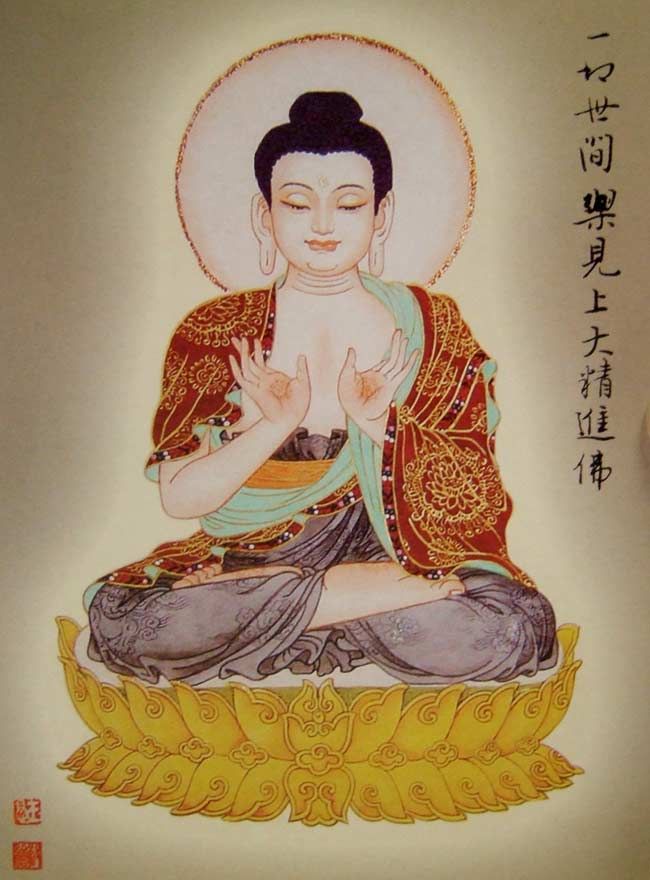 一切世間樂見上大精進佛